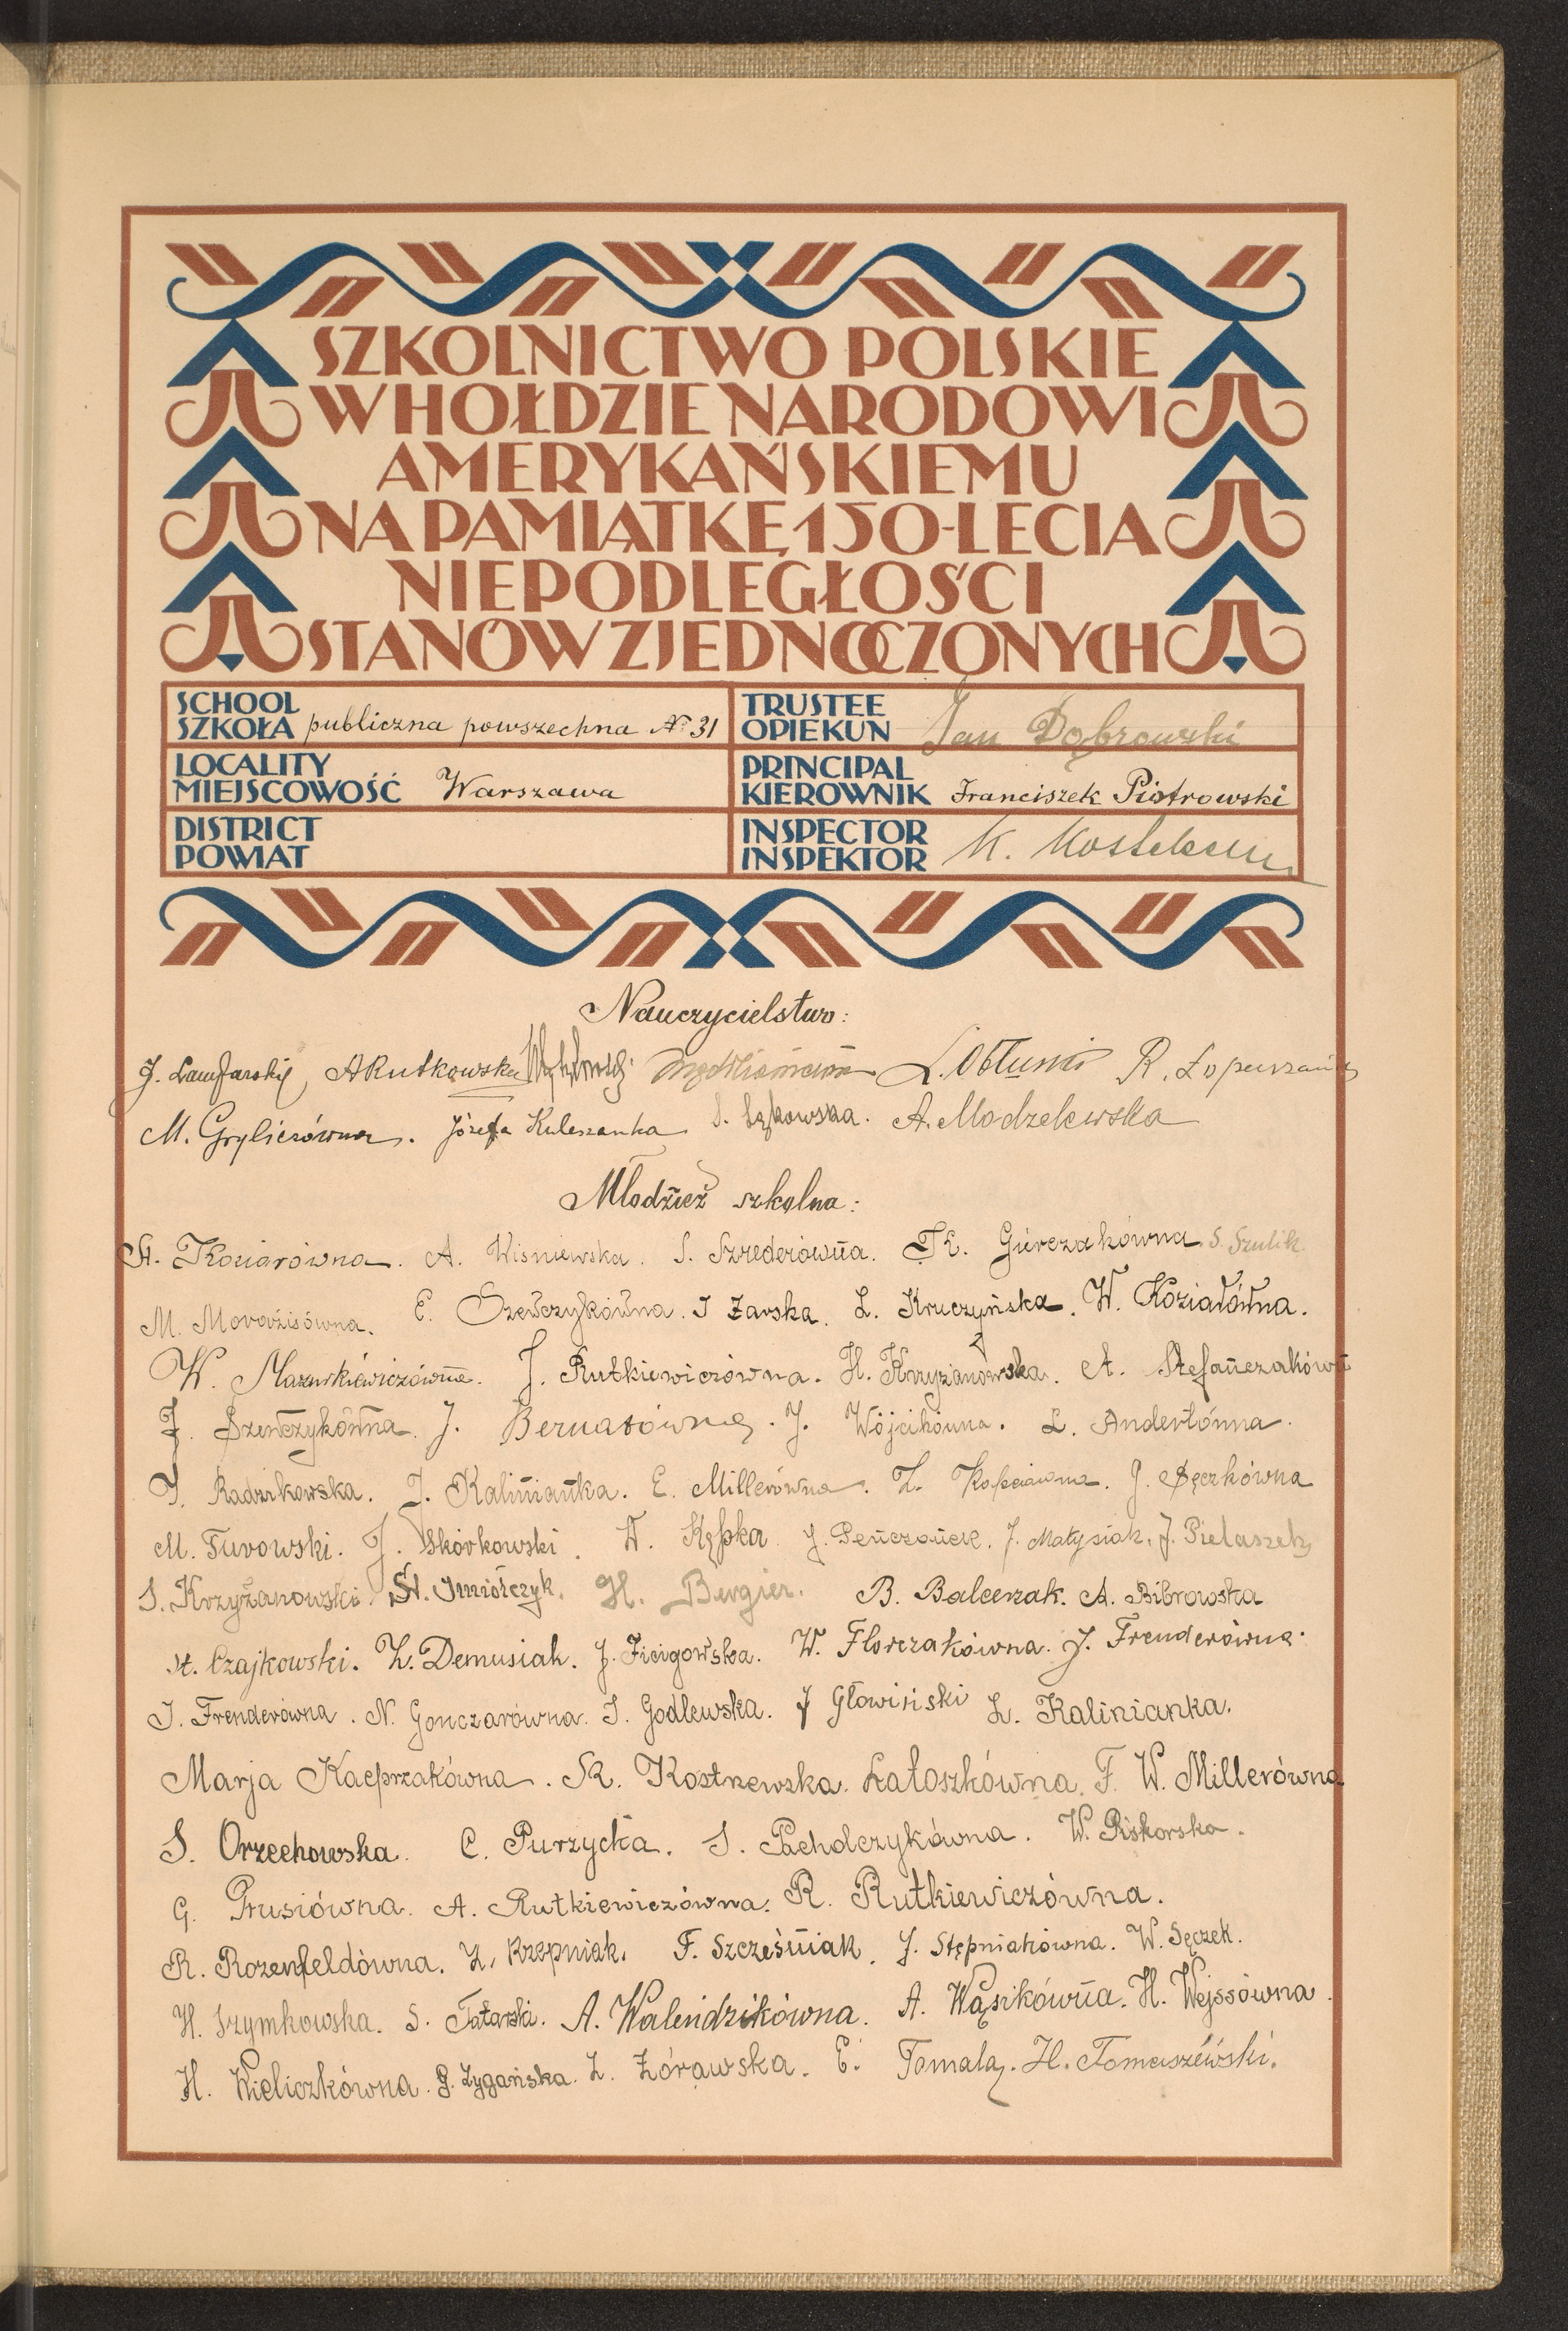 SZKOLNICTWO POLSKIE
W HOŁDZIE NARODOWI
AMERYKAŃSKIEMU
NA PAMIĄTKĘ 150-LECIA
NIEPODLEGŁOŚCI
STANÓW ZJEDNOCZONYCH
SCHOOL
SZKOŁA publiczna powszechna № 31
TRUSTEE
OPIEKUN Jan Dąbrowski
LOCALITY
MIEJSCOWOŚĆ Warszawa
PRINCIPAL
KIEROWNIK Franciszek Piotrowski
DISTRICT
POWIAT
INSPECTOR
INSPEKTOR K.
Nauczycielstwo:
J. ARutkowska L. R.
M. Józefa Kuleszanka S. Łękowska. A. Modzelewska
Młodzież szkolna:
St. Koziarówna. A. Wisniewska. S. Szrederówna. Gúrczakówna S. Szulik.
M. E. Szewczykówna. I Żarska. L. Kruczyńska. W. Koziarówna.
W. Mazurkiewiczówna. J. Rutkiewiczówna. H. Krzyżanowska. A. Stefańczakówn
J. Szewczykówna. J. Bernatówna. J. Wójcikówna. L. Andertówna.
J. Radzikowska. J. Kalinianka. E. Millerówna. Z. J. Sęczkówna
M. Turowski. J. Skórkowski. W. Kępka J. J. Małysiak. J. Pielaszek
S. Krzyżanowski. St. H. Bergier. B. Balcerzak. A. Bibrowska
St. Czajkowski. Z. Demusiak. J. Ficigowska. W. Florczakówna. J. Frenderówna.
J. Frenderówna. N. Gonczarówna. I. Godlewska. J Głowiński L. Kalinianka.
Marja Kacprzakówna. K. Kostrzewska. Łatoszkówna. F. W. Millerówna
S. Orzechowska. C. Purzycka. S. Pacholczykówna. W. Piskorska.
G. Prusiówna. A. Rutkiewiczówna. R. Rutkiewiczówna.
R. Rozenfeldówna. Z. Krzepniak. F. Szcześniak. J. Stępniakówna. W. Sęczek.
H. Szymkowska. S. Tatarski. A. Walendzikówna. A. Wąsikówna. H. Wejssówna.
H. Wieliczkówna. G. Zygańska. Z. Żórawska. E. Tomala. H. Tomaszewski.